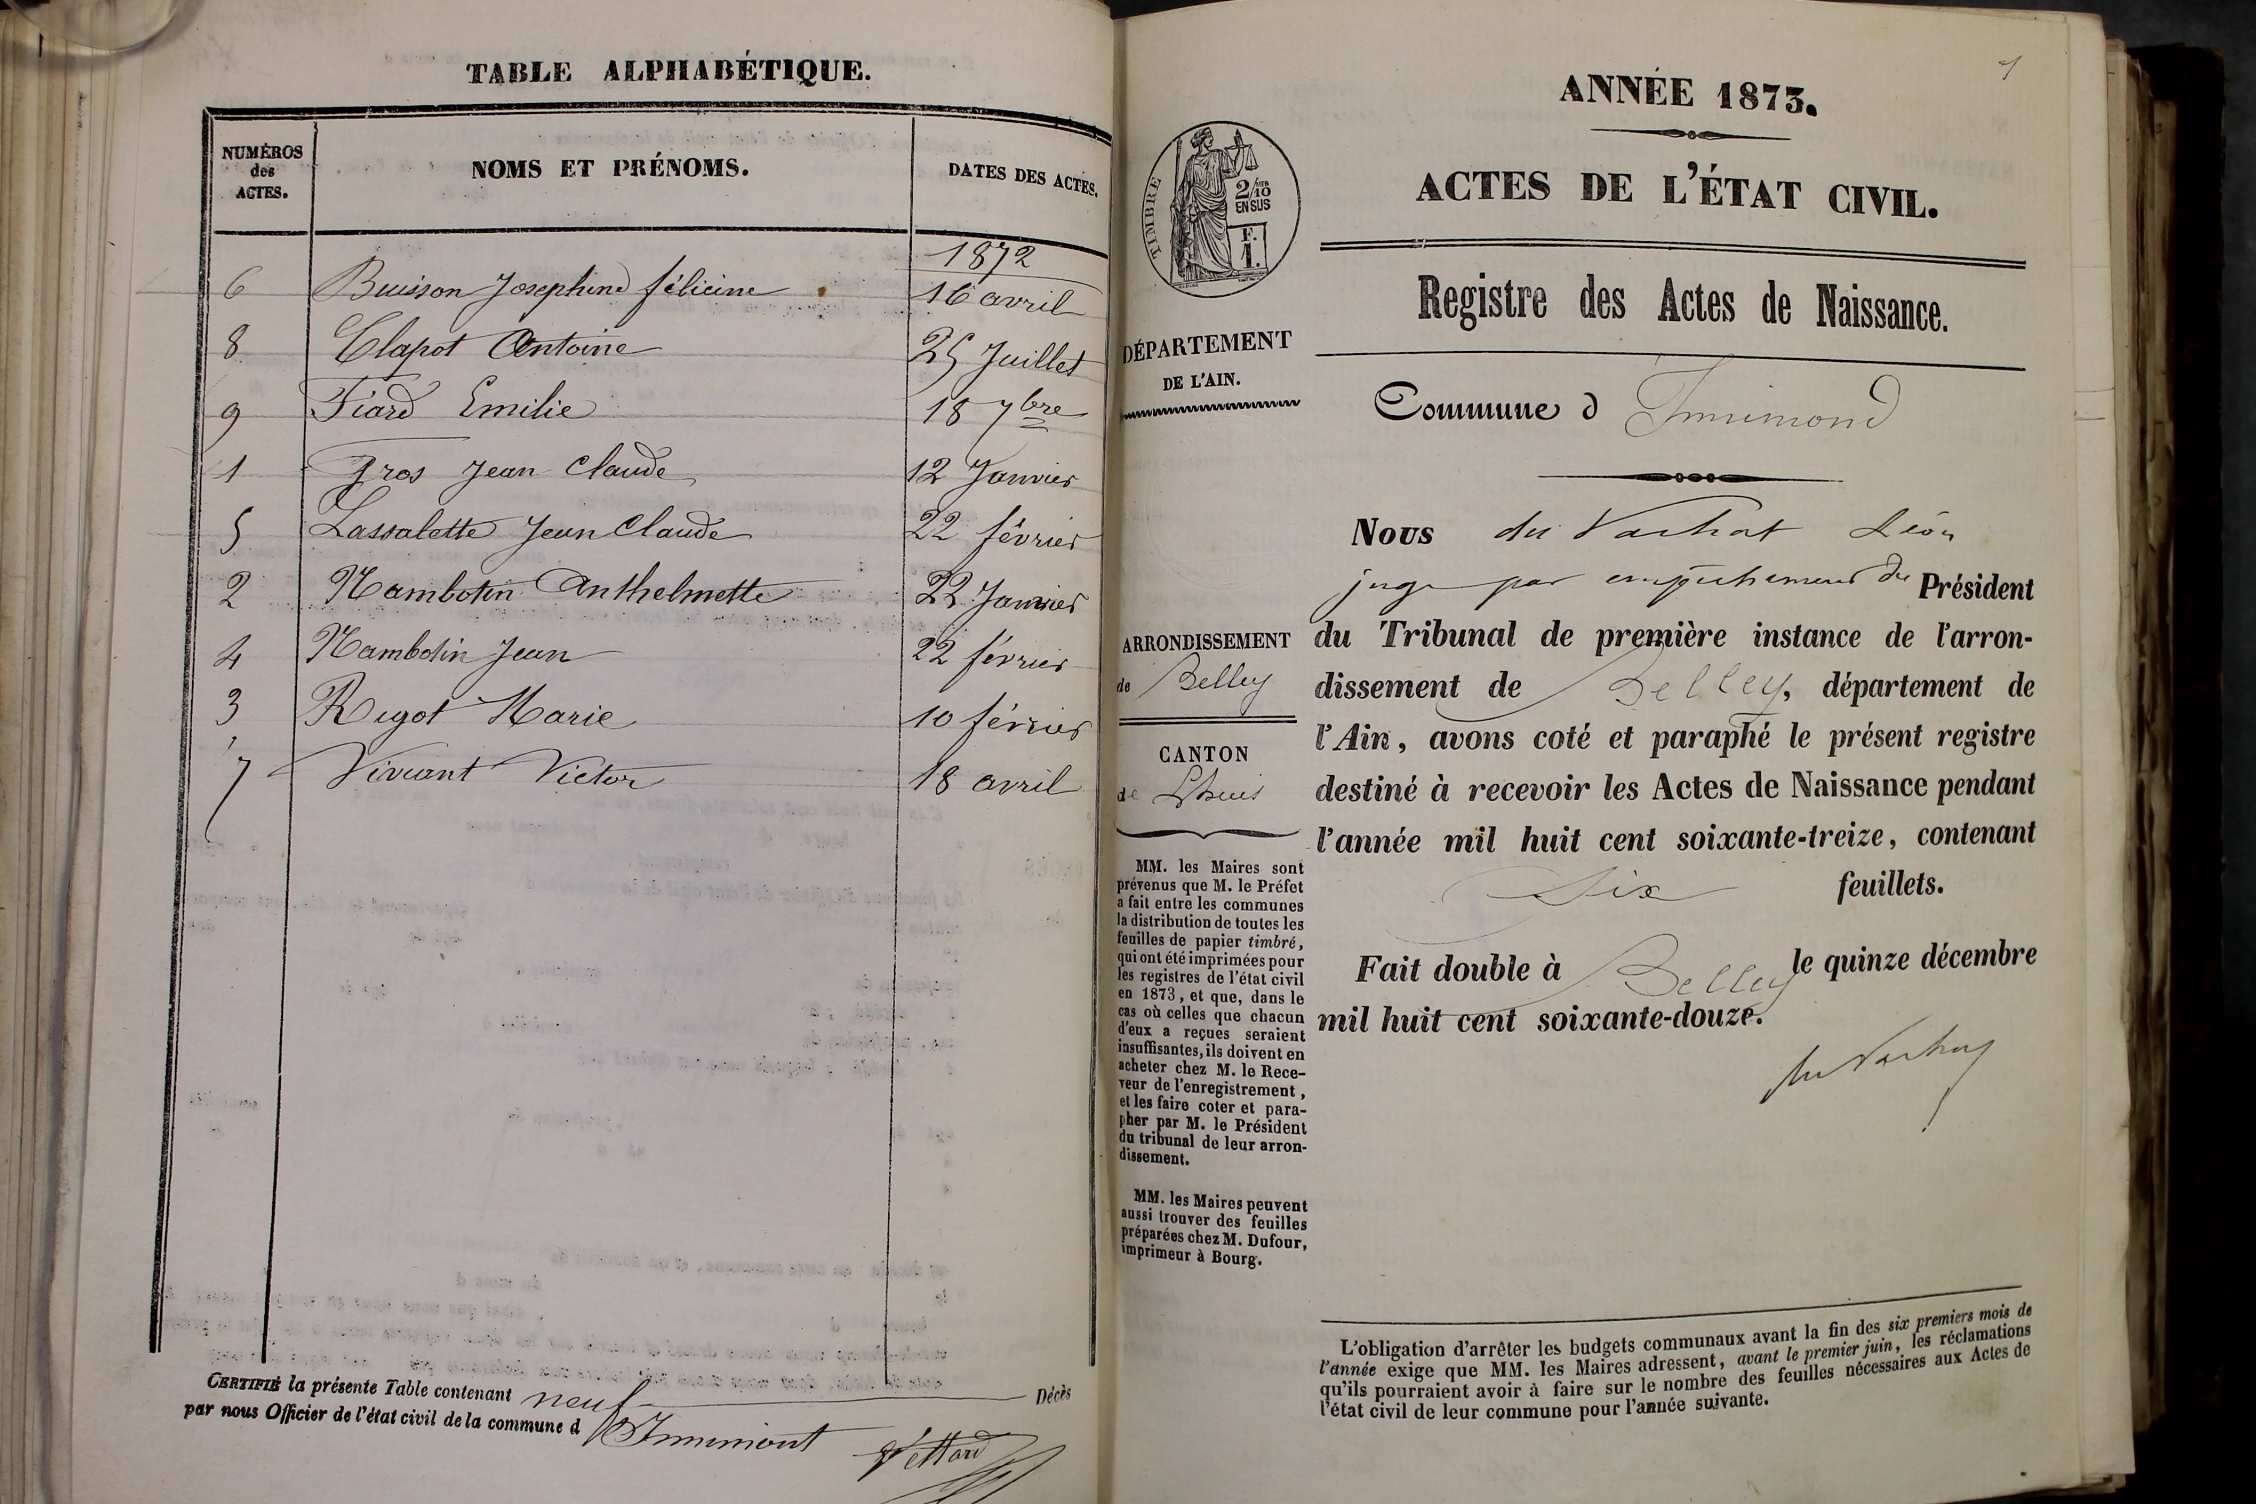 TABLE ALPHABÉTIQUE.
NUMÉROS des ACTES.
NOMS ET PRÉNOMS.
DATES DES ACTES.
1872
6 Buisson Josephine félicine 16 avril
8 Clapot Antoine 25 Juillet
9 Fiard Emilie 18 7bre
1 Gros Jean Claude 12 Janvier
5 Lassalette Jean Claude 22 février
2 Mambotin Anthelmette 22 Janvier
4 Mambotin Jean 22 février
3 Rigot Marie 10 février
7 Viviant Victor 18 avril
CERTIFIÉ la présente Table contenant neuf Décès
par nous Officier de l'état civil de la commune d Innimont
1
ANNÉE 1873.
ACTES DE L'ÉTAT CIVIL.
TIMBRE
2/10
EN SUS
F.
1.
Registre des Actes de Naissance.
DÉPARTEMENT
DE L'AIN.
Commune d Innimond
Nous du Vachat Léon
juge par empêchement du Président
du Tribunal de première instance de l'arron-
dissement de Belley, département de
l'Ain, avons coté et paraphé le présent registre
destiné à recevoir les Actes de Naissance pendant
l'année mil huit cent soixante-treize, contenant
Six feuillets.
Fait double à Belley le quinze décembre
mil huit cent soixante-douze.
du Vachat
ARRONDISSEMENT
de Belley
CANTON
de Lhuis
MM. les Maires sont
prévenus que M. le Préfet
a fait entre les communes
la distribution de toutes les
feuilles de papier timbré,
qui ont été imprimées pour
les registres de l'état civil
en 1873, et que, dans le
cas où celles que chacun
d'eux a reçues seraient
insuffisantes, ils doivent en
acheter chez M. le Rece-
veur de l'enregistrement,
et les faire coter et para-
pher par M. le Président
du tribunal de leur arron-
dissement.
MM. les Maires peuvent
aussi trouver des feuilles
préparées chez M. Dufour,
imprimeur à Bourg.
L'obligation d'arrêter les budgets communaux avant la fin des six premiers mois de
l'année exige que MM. les Maires adressent, avant le premier juin, les réclamations
qu'ils pourraient avoir à faire sur le nombre des feuilles nécessaires aux Actes de
l'état civil de leur commune pour l'année suivante.